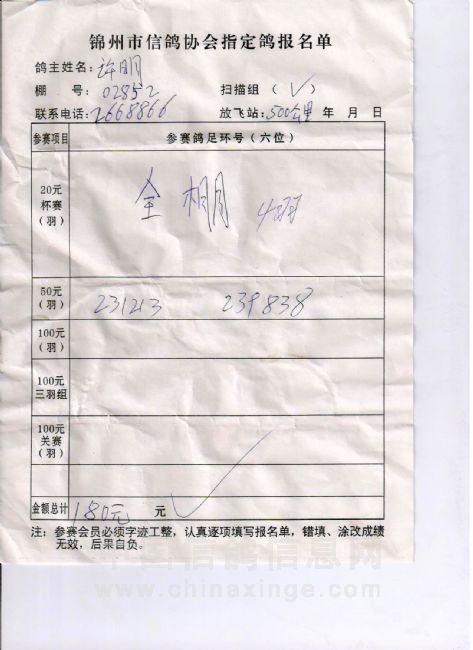 锦州市信鸽协会指定鸽报名单
鸽主姓名：许明
棚　号：02852　扫描组（√）
联系电话：2668866　放飞站：500公里 年 月 日
参赛项目　参赛鸽足环号（六位）
20元
杯赛
（羽）
全棚 4羽
50元
（羽）
231213　239838
100元
（羽）
100元
三羽组
100元
关赛
（羽）
金额总计 180元 元
注：参赛会员必须字迹工整，认真逐项填写报名单，错填、涂改成绩
无效，后果自负。
中国信鸽信息网
www.chinaxinge.com